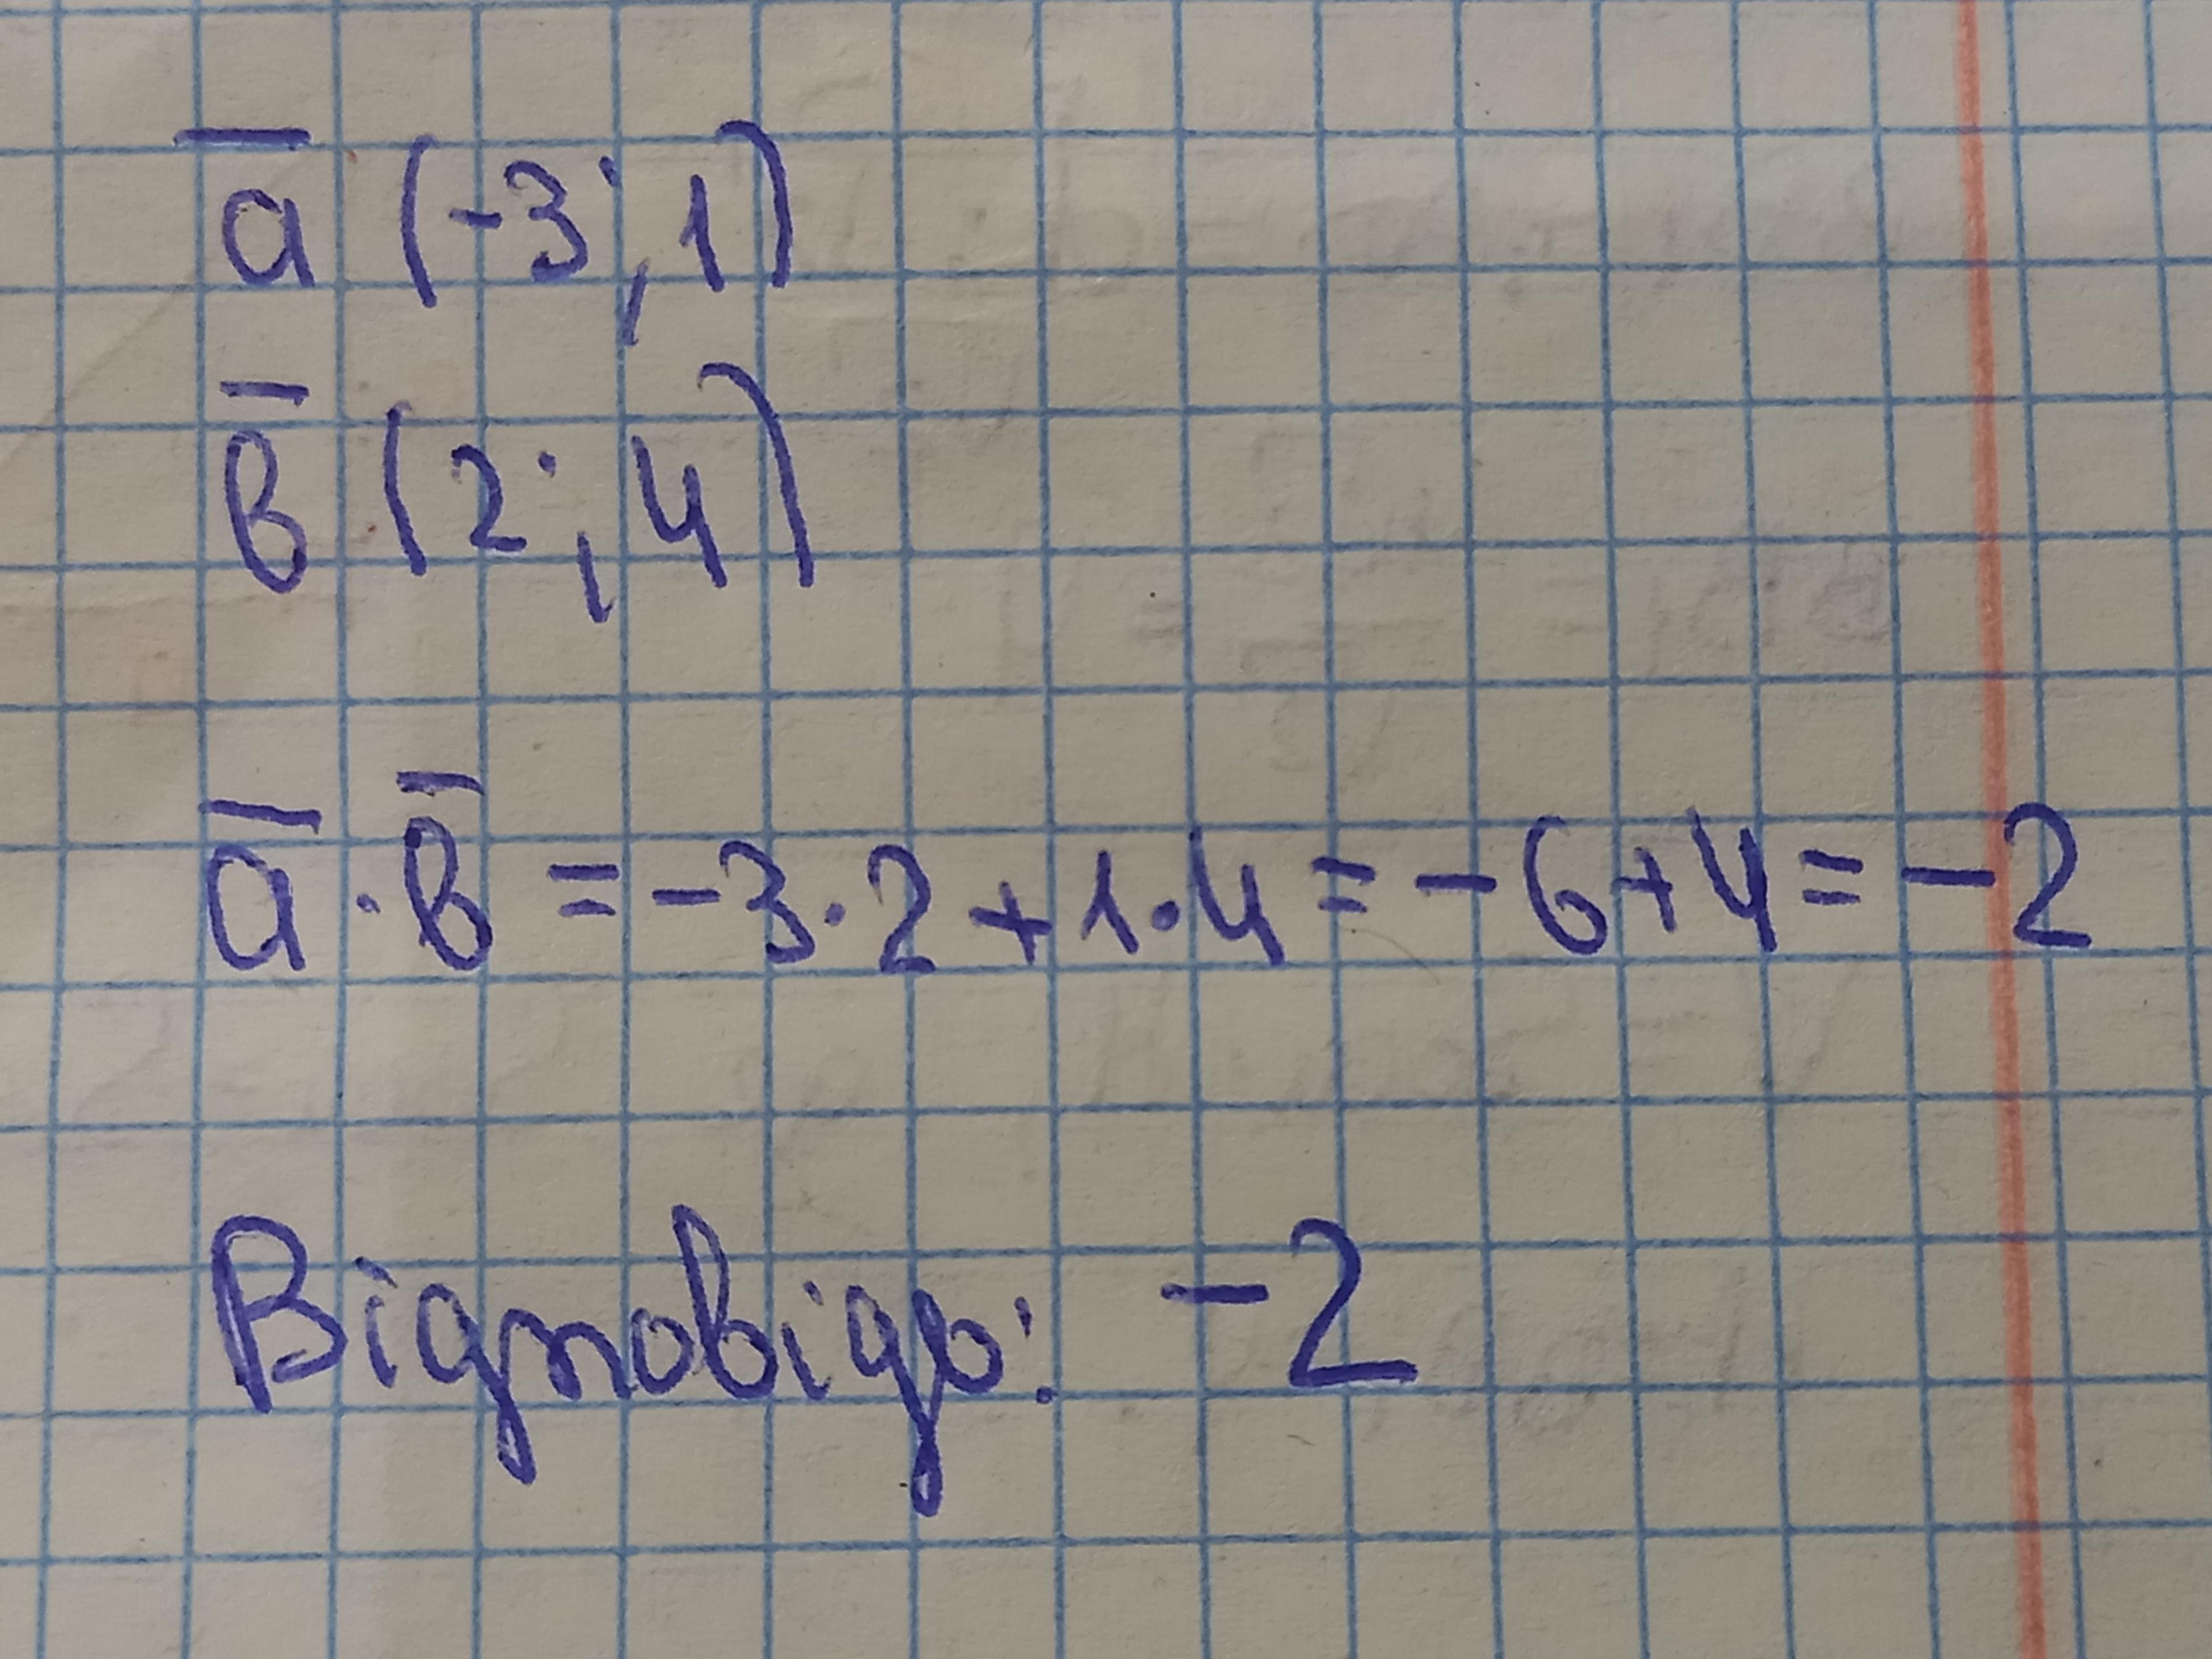 a̅ (-3; 1)
в̅ (2; 4)
a̅ · в̅ = -3·2 + 1·4 = -6+4 = -2
Відповідь: -2